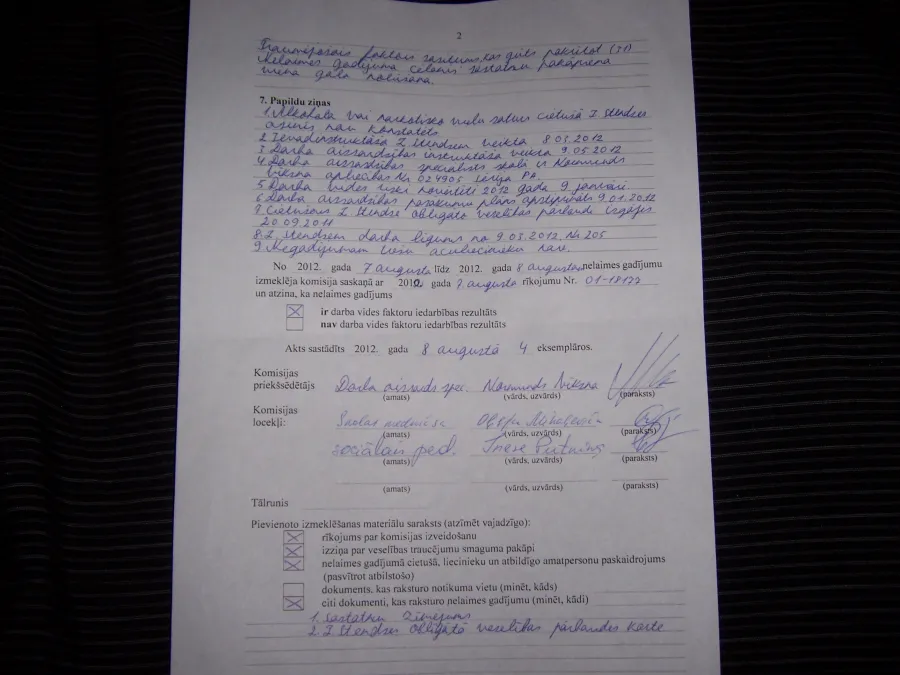 2
Traumējošais faktors sasitums, kas gūts nokrītot (31)
Nelaimes gadījuma cēlonis sastatņu pakāpiena
viena gala nolūšana.
7. Papildu ziņas
1. Alkohola vai narotisko vielu saturs cietušā I. Stendzes
asinīs nav konstatēts
2. Ievadinstruktāža I. Stendzem veikta 8.03.2012
3. Darba aizsardzības instruktāža veikta 9.05.2012
4. Darba aizsardzības speciālists skolā ir Normunds
Vīksna apliecības Nr. 024905 Latvija PA.
5. Darba vides riski novērtēti 2012 gada 9 janvārī.
6. Darba aizsardzības pasākumu plāns apstiprināts 9.01.2012
7. Cietušais I. Stendze obligāto veselības pārbaudi izgājis
20.09.2011
8. I. Stendzem darba līgums no 9.03.2012. Nr. 205
9. Negadījumam citu aculiecinieku nav.
No 2012. gada 7 augusta līdz 2012. gada 8 augustam nelaimes gadījumu
izmeklēja komisija saskaņā ar 2012 gada 7. augusta rīkojumu Nr. 01-18177
un atzina, ka nelaimes gadījums
ir darba vides faktoru iedarbības rezultāts
nav darba vides faktoru iedarbības rezultāts
Akts sastādīts 2012. gada 8 augustā 4 eksemplāros.
Komisijas
priekšsēdētājs Darba aizsards. spec. Normunds Vīksna
(amats) (vārds, uzvārds) (paraksts)
Komisijas
locekļi: Skolas medmāsa Oļģa
(amats) (vārds, uzvārds) (paraksts)
sociālais ped. Inese Putniņš
(amats) (vārds, uzvārds) (paraksts)
(amats) (vārds, uzvārds) (paraksts)
Tālrunis
Pievienoto izmeklēšanas materiālu saraksts (atzīmēt vajadzīgo):
rīkojums par komisijas izveidošanu
izziņa par veselības traucējumu smaguma pakāpi
nelaimes gadījumā cietušā, liecinieku un atbildīgo amatpersonu paskaidrojums
(pasvītrot atbilstošo)
dokuments, kas raksturo notikuma vietu (minēt, kāds)
citi dokumenti, kas raksturo nelaimes gadījumu (minēt, kādi)
1. Sastatņu zīmējums
2. I. Stendzes obligātā veselības pārbaudes karte